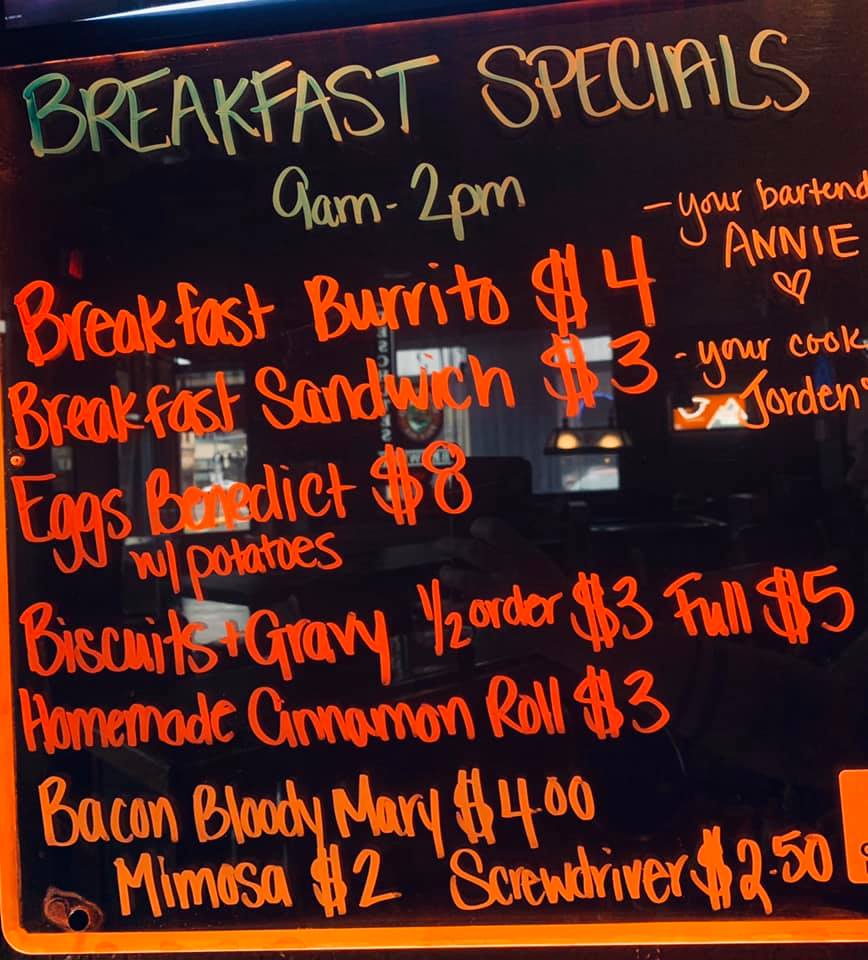 BREAKFAST SPECIALS
9am-2pm
- your bartend
ANNIE
♡
Breakfast Burrito $4
Breakfast Sandwich $3
- your cook
Jorden
Eggs Benedict $8
w/ potatoes
Biscuits + Gravy 1/2 order $3 Full $5
Homemade Cinnamon Roll $3
Bacon Bloody Mary $4.00
Mimosa $2 Screwdriver $2.50